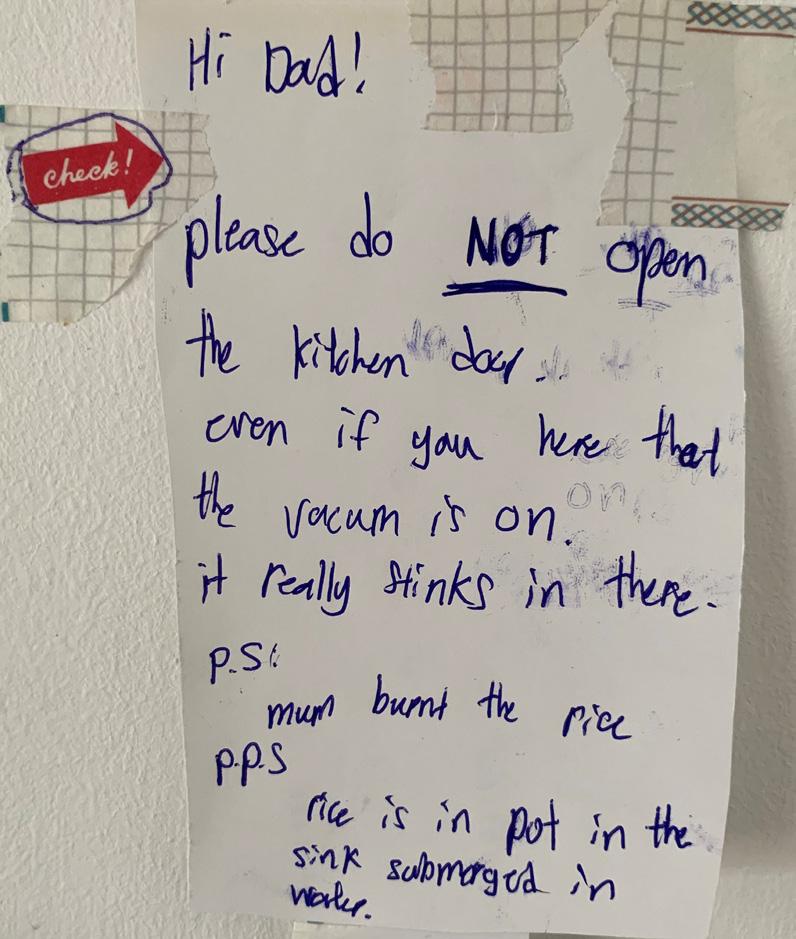 Hi Dad!
check!
please do NOT open
the kitchen door.
even if you here that
the vacum is on.
on
it really stinks in there.
p.S:
mum burnt the rice
p.p.S
rice is in pot in the
sink submerged in
water.